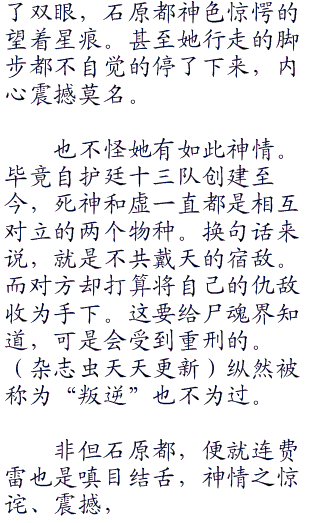 了双眼，石原都神色惊愕的
望着星痕。甚至她行走的脚
步都不自觉的停了下来，内
心震撼莫名。
也不怪她有如此神情。
毕竟自护廷十三队创建至
今，死神和虚一直都是相互
对立的两个物种。换句话来
说，就是不共戴天的宿敌。
而对方却打算将自己的仇敌
收为手下。这要给尸魂界知
道，可是会受到重刑的。
（杂志虫天天更新）纵然被
称为“叛逆”也不为过。
非但石原都，便就连费
雷也是嗔目结舌，神情之惊
诧、震撼，